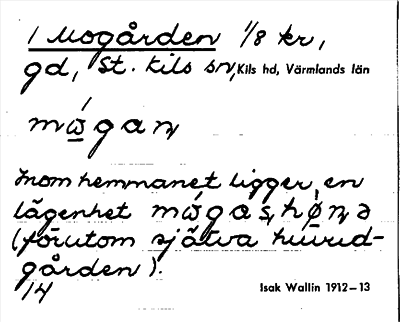 1 Mogården 1/8 kr,
gd, St. Kils sn, Kils hd, Värmlands län
Inom hemmanet ligger en
lägenhet
(förutom själva huvud-
gården).
14
Isak Wallin 1912–13